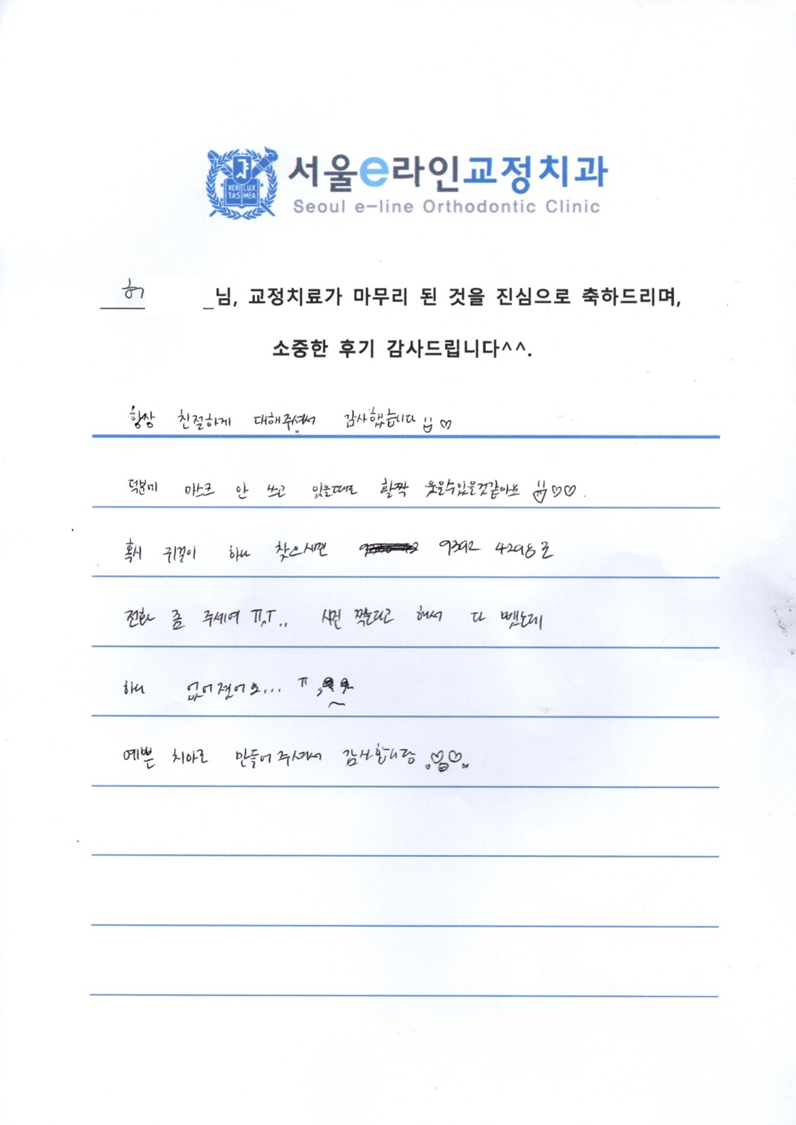 VERI LUX TAS MEA
서울e라인교정치과
Seoul e-line Orthodontic Clinic
허 님, 교정치료가 마무리 된 것을 진심으로 축하드리며,
소중한 후기 감사드립니다^^.
항상 친절하게 대해주셔서 감사했습니다 ♡
덕분에 마스크 안 쓰고 있을때도 활짝 웃을수있을것같아요 ♡♡.
혹시 귀걸이 하나 찾으시면 9392 4298로
전화 좀 주세여 ㅠㅠ.. 사진 찍는다고 해서 다 뺐는데
하나 없어졌어요... ㅠ
예쁜 치아로 만들어 주셔서 감사합니당 ♡♡